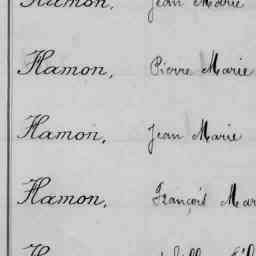 Hamon, Jean Marie
Hamon, Pierre Marie
Hamon, Jean Marie
Hamon, François Mar